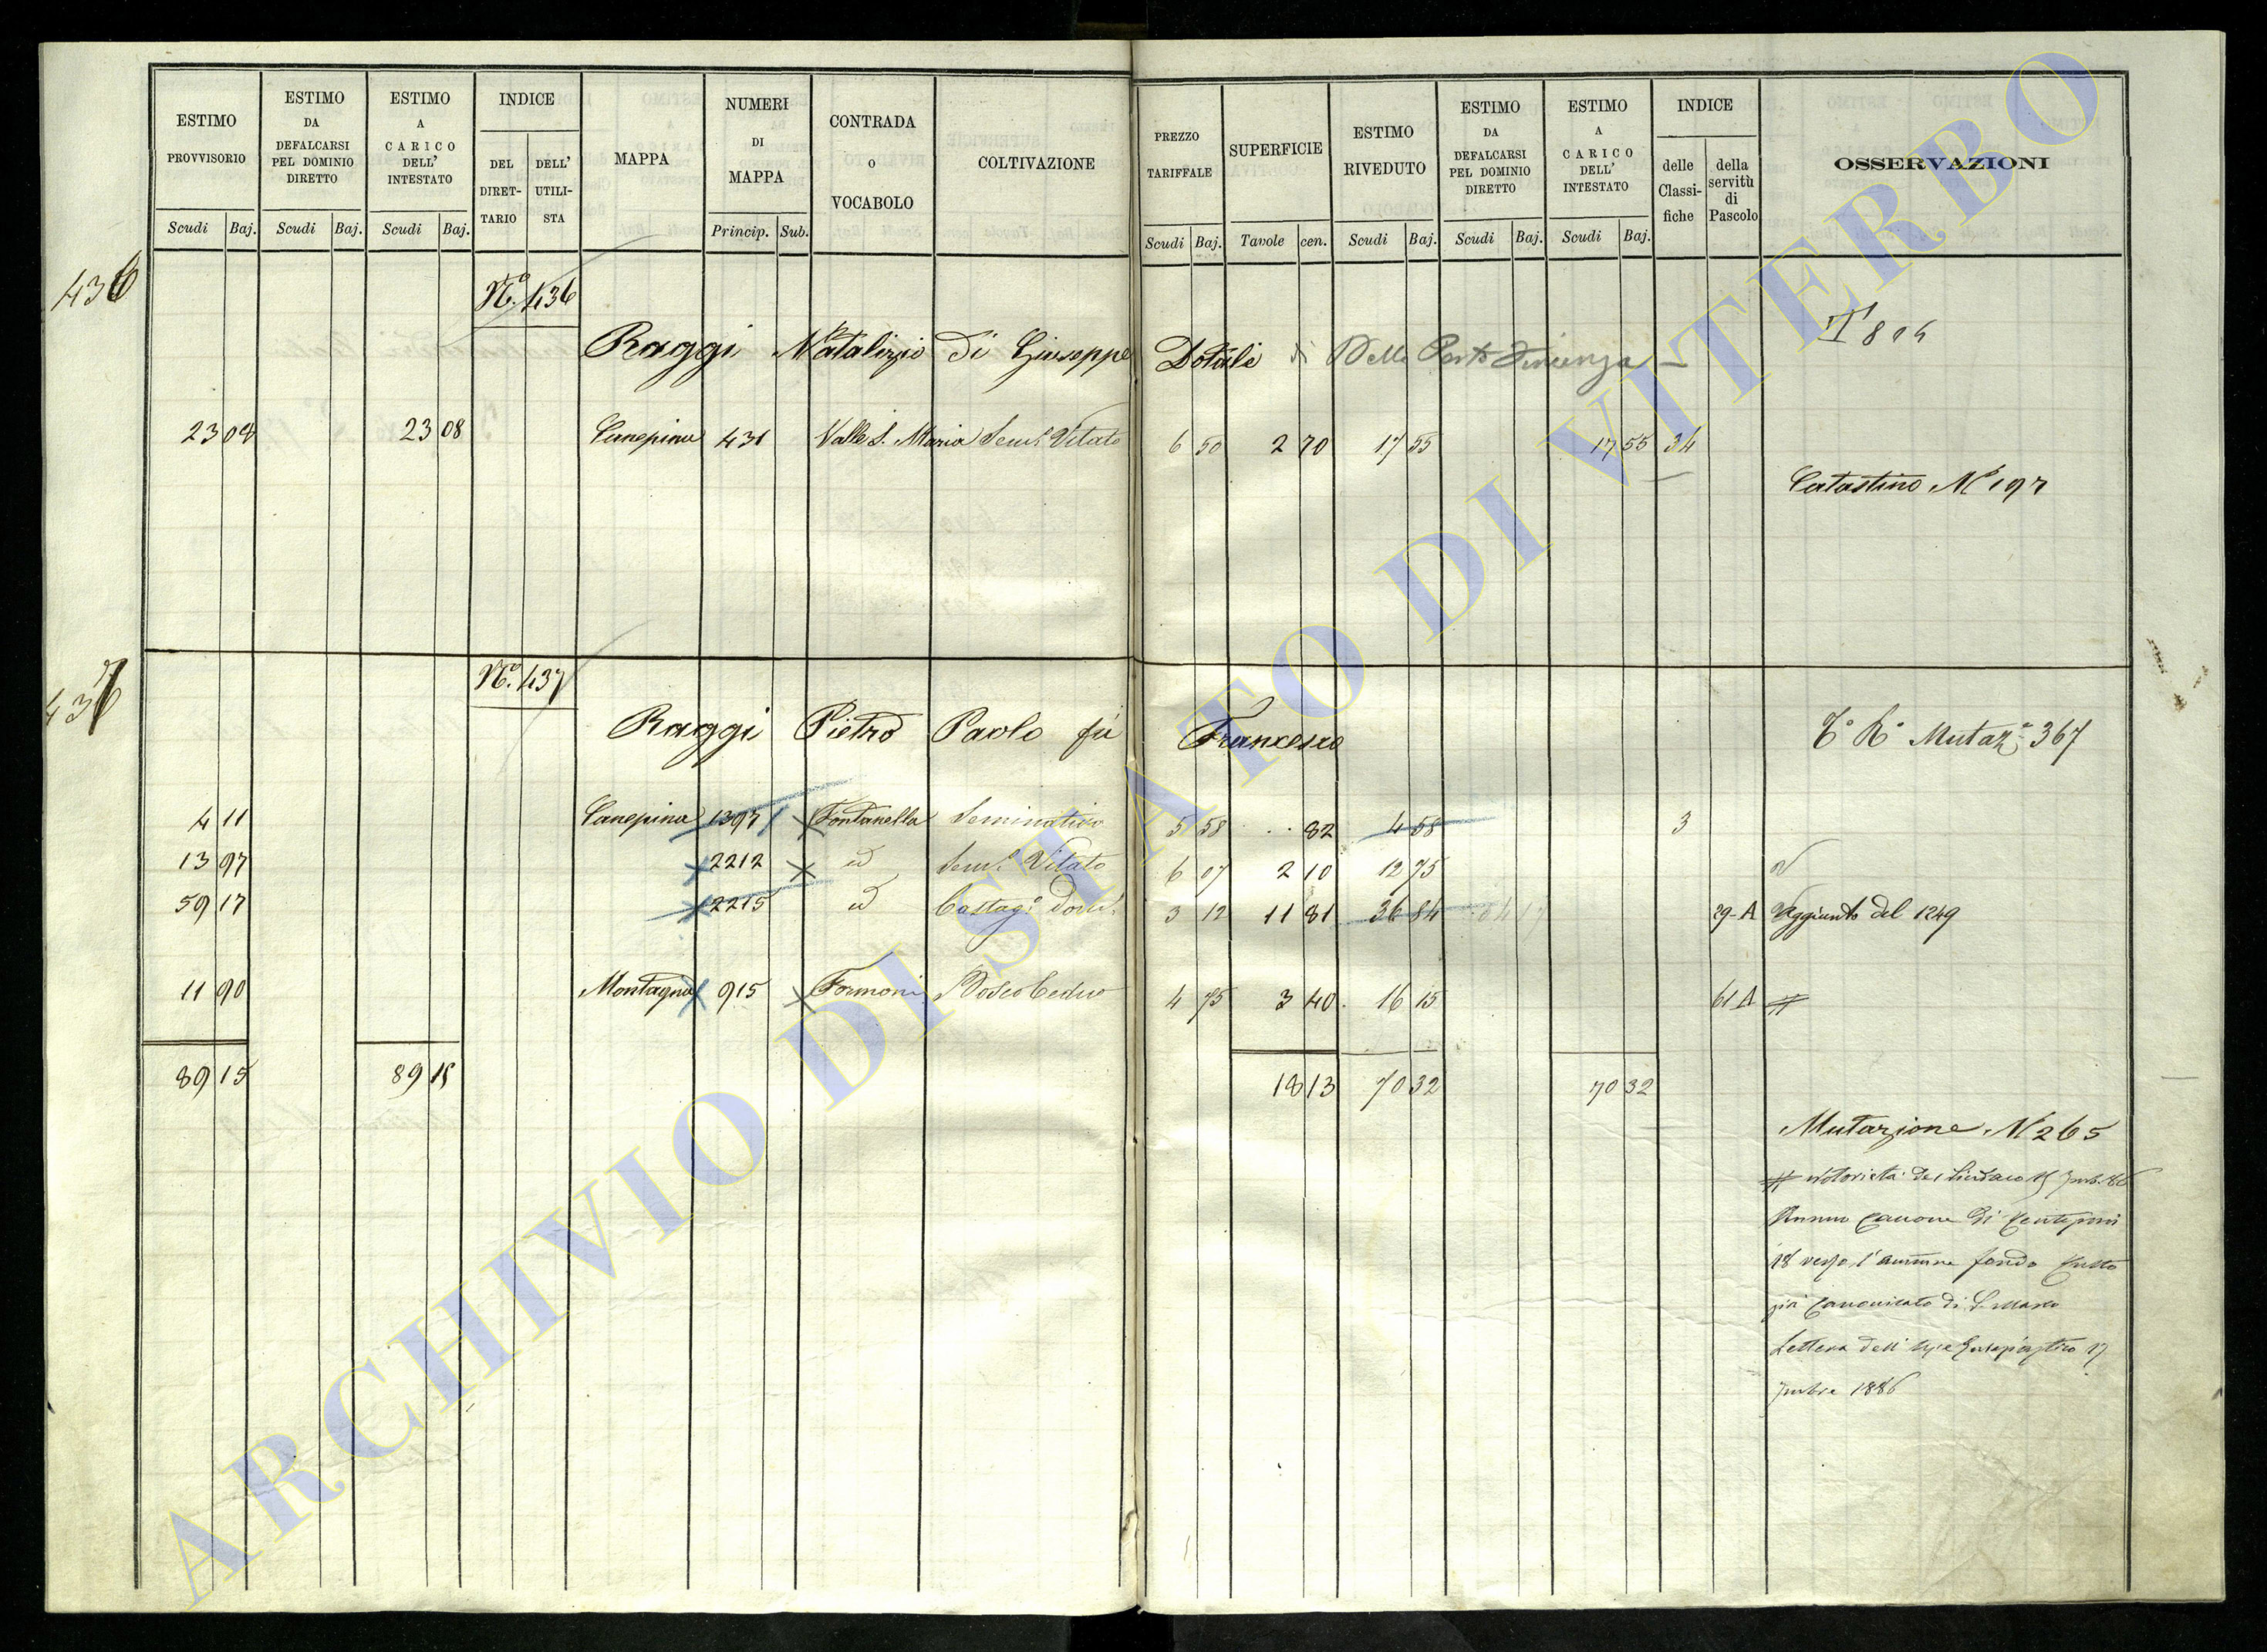 ESTIMO PROVVISORIO Scudi Baj.
ESTIMO DA DEFALCARSI PEL DOMINIO DIRETTO Scudi Baj.
ESTIMO A CARICO DELL' INTESTATO Scudi Baj.
INDICE DEL DIRET-TARIO DELL' UTILI-STA
MAPPA
NUMERI DI MAPPA Princip. Sub.
CONTRADA O VOCABOLO
COLTIVAZIONE
PREZZO TARIFFALE Scudi Baj.
SUPERFICIE Tavole cen.
ESTIMO RIVEDUTO Scudi Baj.
ESTIMO DA DEFALCARSI PEL DOMINIO DIRETTO Scudi Baj.
ESTIMO A CARICO DELL' INTESTATO Scudi Baj.
INDICE delle Classi-fiche della servitù di Pascolo
OSSERVAZIONI
436
N.º 436
Raggi Natalizio di Giuseppe Dotali di Della Porta Vincenza
23 08 23 08 Canepina 431 Valle S. Maria Sem.º Vitato 6 50 2 70 17 55 17 55 34
Catastino Nº 197
437
N.º 437
Raggi Pietro Paolo fù Francesco
Tº Rº Mutazº 367
4 11 Canepina 1397 Fontanella Seminativo 5 58 .. 82 4 58 3
13 97 2212 id Sem.º Vitato 6 07 2 10 12 75
59 17 2215 id Castagº 3 12 11 81 36 84 29-A Aggiunto del 1249
11 90 Montagna 915 Formoni Bosco Ceduo 4 75 3 40 16 15 61 A #
89 15 89 15 18 13 70 32 70 32
Mutazione Nº 265
# Notorietà del Sindaco 15
Annuo Canone di
18 verso l' fondo
Canonicato di S. Marco
Lettera dell' 17
1886
ARCHIVIO DI STATO DI VITERBO